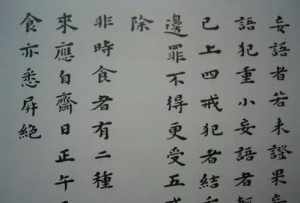 妄語者若未證果妄
語犯重小妄語者
已上四戒犯者結
邊罪不得更受五
除
非時食者有二種
來應白齋日正午
食亦悉屏絕